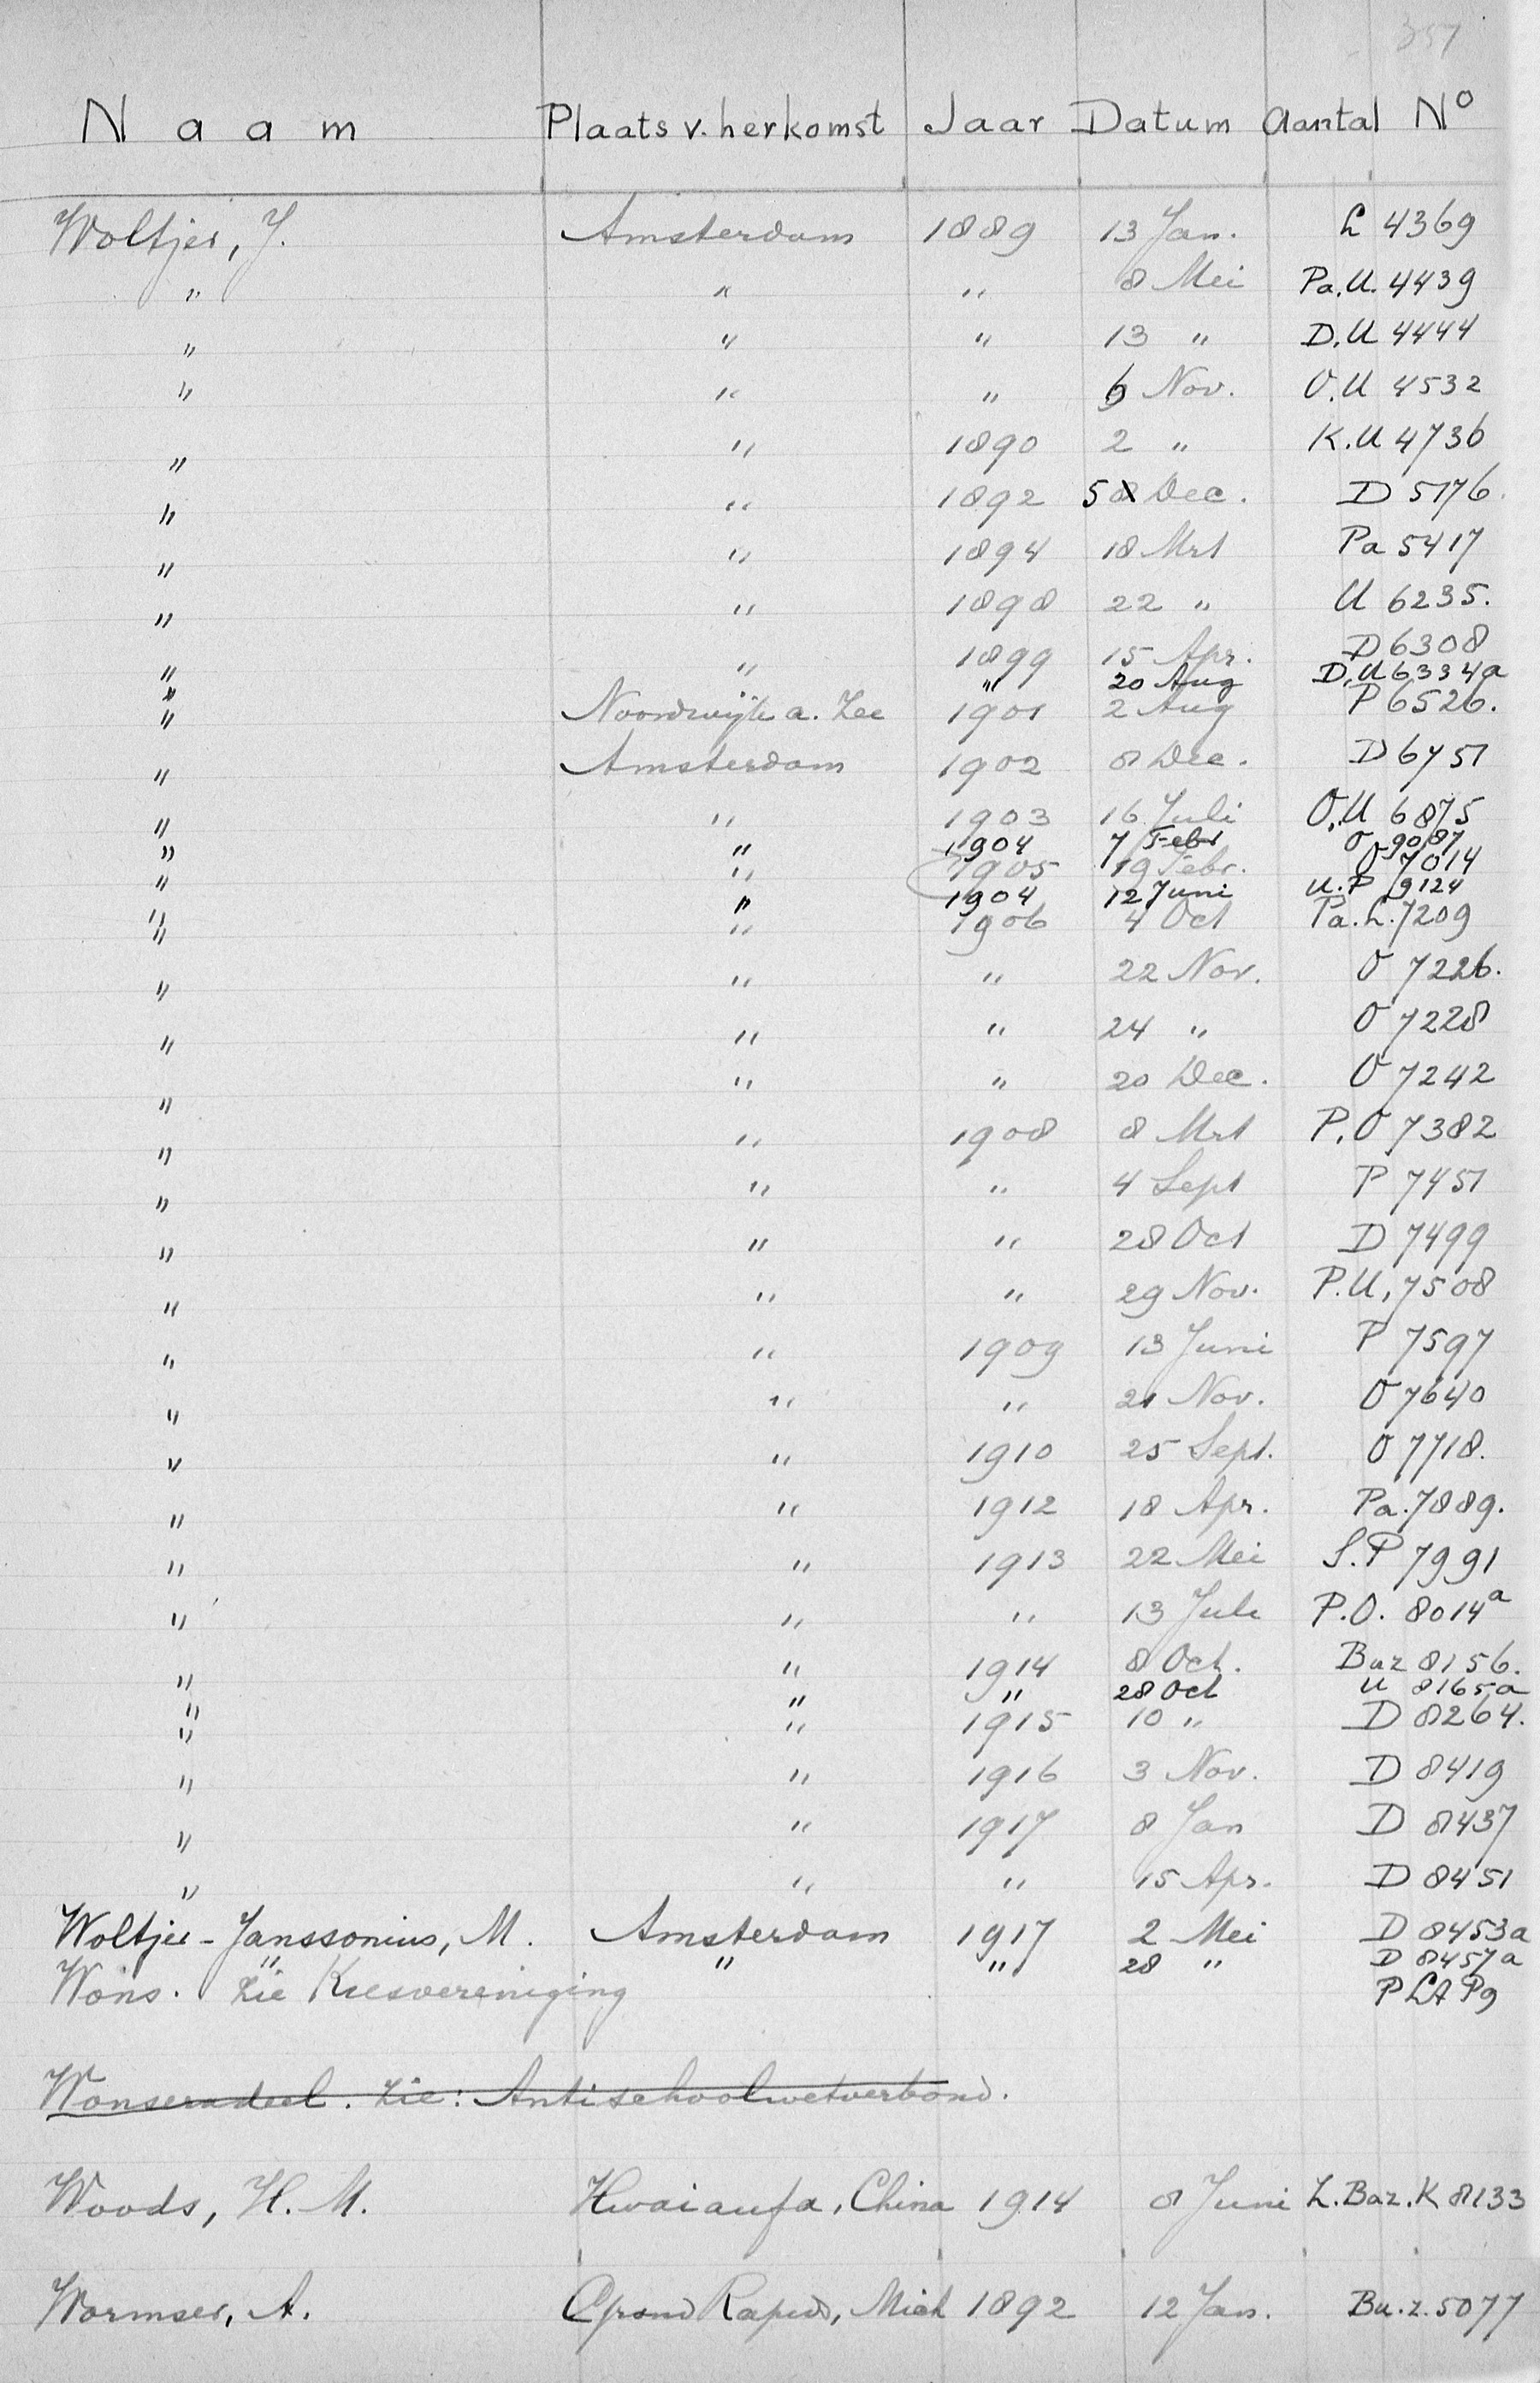 357
Naam Plaats v. herkomst Jaar Datum Aantal Nº
Woltjer, J. Amsterdam 1889 13 Jan. L 4369
" " " 8 Mei Pa.U. 4439
" " " 13 " D.U 4444
" " " 6 Nov. O.U 4532
" " 1890 2 " K.U 4736
" " 1892 5 Dec. D 5176.
" " 1894 18 Mrt Pa 5417
" " 1898 22 " U 6235.
" " 1899 15 Apr. D 6308
" " 20 Aug D.U 6334a
" Noordwijk a. Zee 1901 2 Aug P 6526.
" Amsterdam 1902 8 Dec. D 6751
" " 1903 16 Juli O.U 6875
" " 1904 7 Febr O 9087
" " 1905 19 Febr. O 7014
" " 1904 12 Juni U.P 9124
" " 1906 4 Oct Pa.L. 7209
" " " 22 Nov. O 7226.
" " " 24 " O 7228
" " " 20 Dec. O 7242
" " 1908 8 Mrt P.O 7382
" " " 4 Sept P 7451
" " " 28 Oct D 7499
" " " 29 Nov. P.U. 7508
" " 1909 13 Juni P 7597
" " " 21 Nov. O 7640
" " 1910 25 Sept. O 7718.
" " 1912 18 Apr. Pa. 7889.
" " 1913 22 Mei S.P 7991
" " " 13 Juli P.O. 8014a
" " 1914 8 Oct. Buz 8156.
" " " 28 Oct U 8165a
" " 1915 10 " D 8264.
" " 1916 3 Nov. D 8419
" " 1917 8 Jan D 8437
" " " 15 Apr. D 8451
Woltjer-Janssonius, M. Amsterdam 1917 2 Mei D 8453a
" " " 28 " D 8457a
Wons. Zie Kiesvereniging P LA Pg
Wonseradeel. Zie: Antischoolwetverbond.
Woods, H. M. Hwaianfa, China 1914 8 Juni L.Baz.K 8133
Wormser, A. Grand Rapids, Mich 1892 12 Jan. Bu.z. 5077